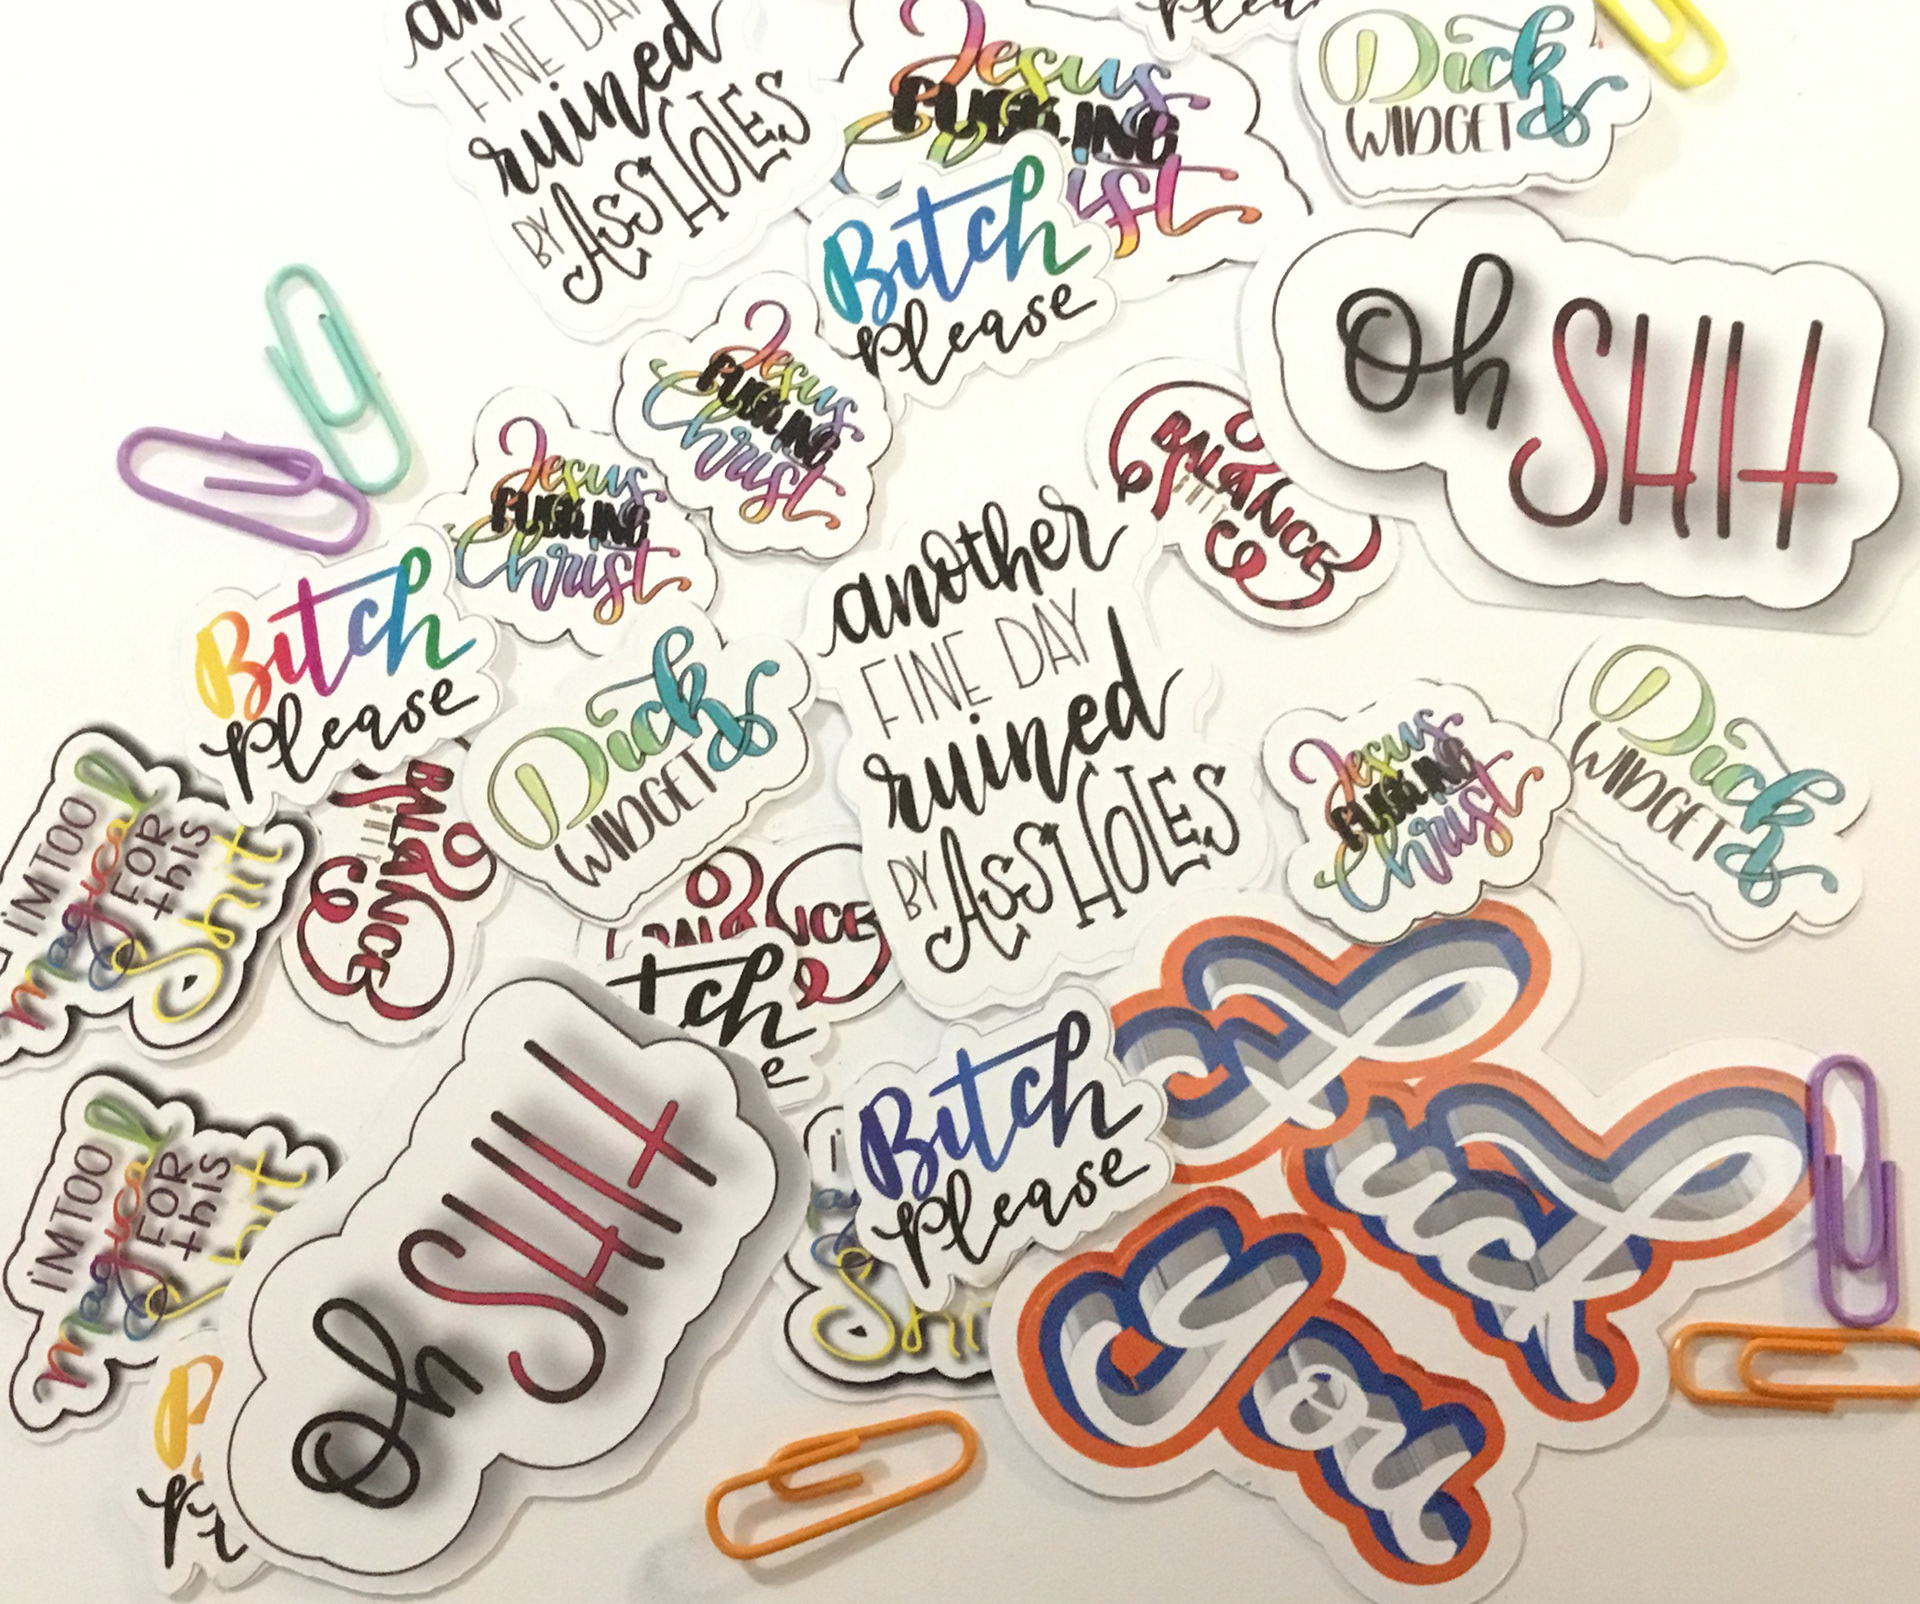 an
FINE DAY
ruined
BY ASSHOLES
Jesus
FUCKING
ist
Please
Dick
WIDGET
Bitch
please
oh SHIT
Jesus
FUCKING
Christ
BALANCE
Jesus
FUCKING
Christ
another
FINE DAY
ruined
BY ASSHOLES
Bitch
please
Dick
WIDGET
Dick
WIDGET
Jesus
FUCKING
Christ
I'M TOO
magical
FOR
this
Shit
BALANCE
BALANCE
tch
e
Bitch
please
Fuck
you
I'M TOO
magical
FOR
this
hit
oh SHIT
I'
Shi
B